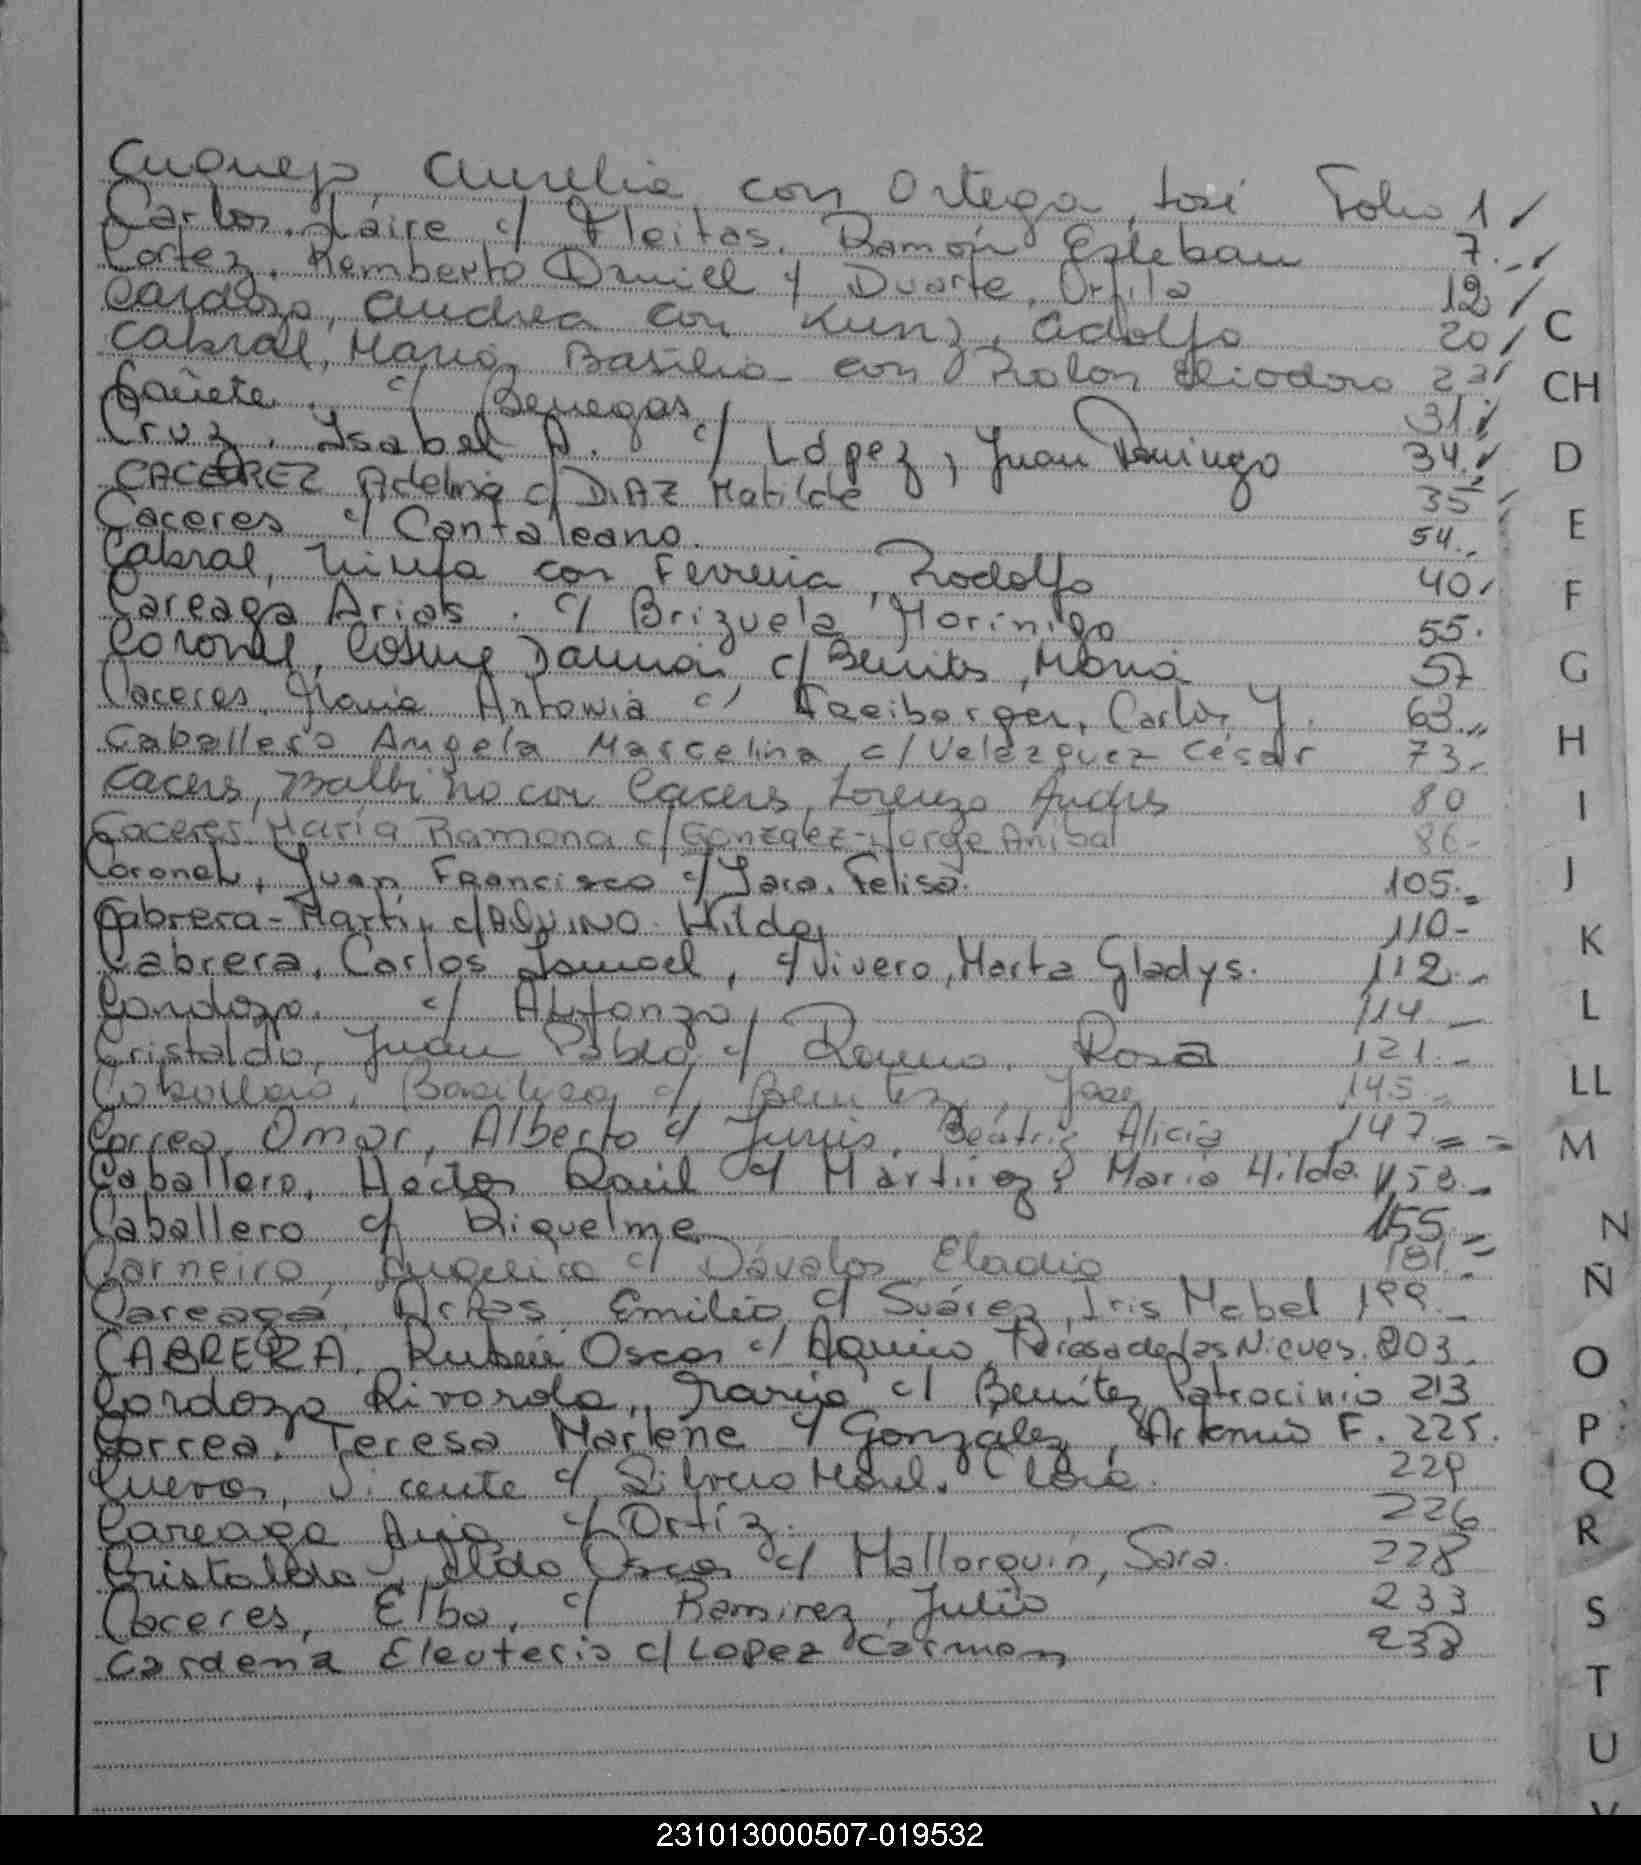 Cuquejo Aurelia con Ortega, José Folio 1
Carlos, Laire c/ Fleitas, Ramón Esteban 7
Cortez, Remberto Daniel c/ Duarte, Orfila 12
Cardozo, Andrea con Kunz, Adolfo 20
Cabral, María Basilia con Rolon Eliodoro 23
Cañete c/ Benegas 31
Cruz, Isabel A. c/ López, Juan Domingo 34
CACEREZ Adelina c/ DIAZ Matilde 35
Caceres c/ Cantaleano 54
Cabral, Ninfa con Ferreria, Rodolfo 40
Careaga Arias c/ Brizuela Morinigo 55
Coronel, Cosme Damian c/ Benites, María 57
Caceres, María Antonia c/ Freiberger, Carlos J. 63
Caballero Angela Marcelina c/ Velezquez César 73
Caceres, Balbino con Caceres, Lorenzo Andres 80
Caceres María Ramona c/ Gonzalez-Jorge Anibal 86
Coronel, Juan Francisco c/ Jara, Felisa. 105
Cabrera-Martin c/ ALVINO Hilda 110
Cabrera, Carlos Ismael, c/ Vivero, Marta Gladys. 112
Cardozo c/ Alfonzo 114
Cristaldo, Juan Pablo c/ Romero, Rosa 121
Caballero, Basilisa c/ Benitez, Jose 145
Correa, Omar, Alberto c/ Junis, Beatriz Alicia 147
Caballero, Hector Raúl c/ Martinez María Hilda 153
Caballero c/ Riquelme 155
Carneiro, Angelica c/ Dávalos Eladio 181
Careaga Arias Emilio c/ Suárez, Iris Mabel 199
CABRERA, Rubén Oscar c/ Aquino, Rosa de las Nieves. 203
Cardozo Rivarola, María c/ Benítez Patrocinio 213
Correa, Teresa Marlene c/ González, Artemio F. 225.
Cuevas, Vicente c/ Silvero Clara. 229
Careaga c/ Ortíz. 226
Cristaldo, Aldo Oscar c/ Mallorquin, Sara. 228
Caceres, Elba, c/ Ramirez, Julio 233
Cardena Eleuterio c/ Lopez Carmen 238
C
CH
D
E
F
G
H
I
J
K
L
LL
M
N
Ñ
O
P
Q
R
S
T
U
231013000507-019532